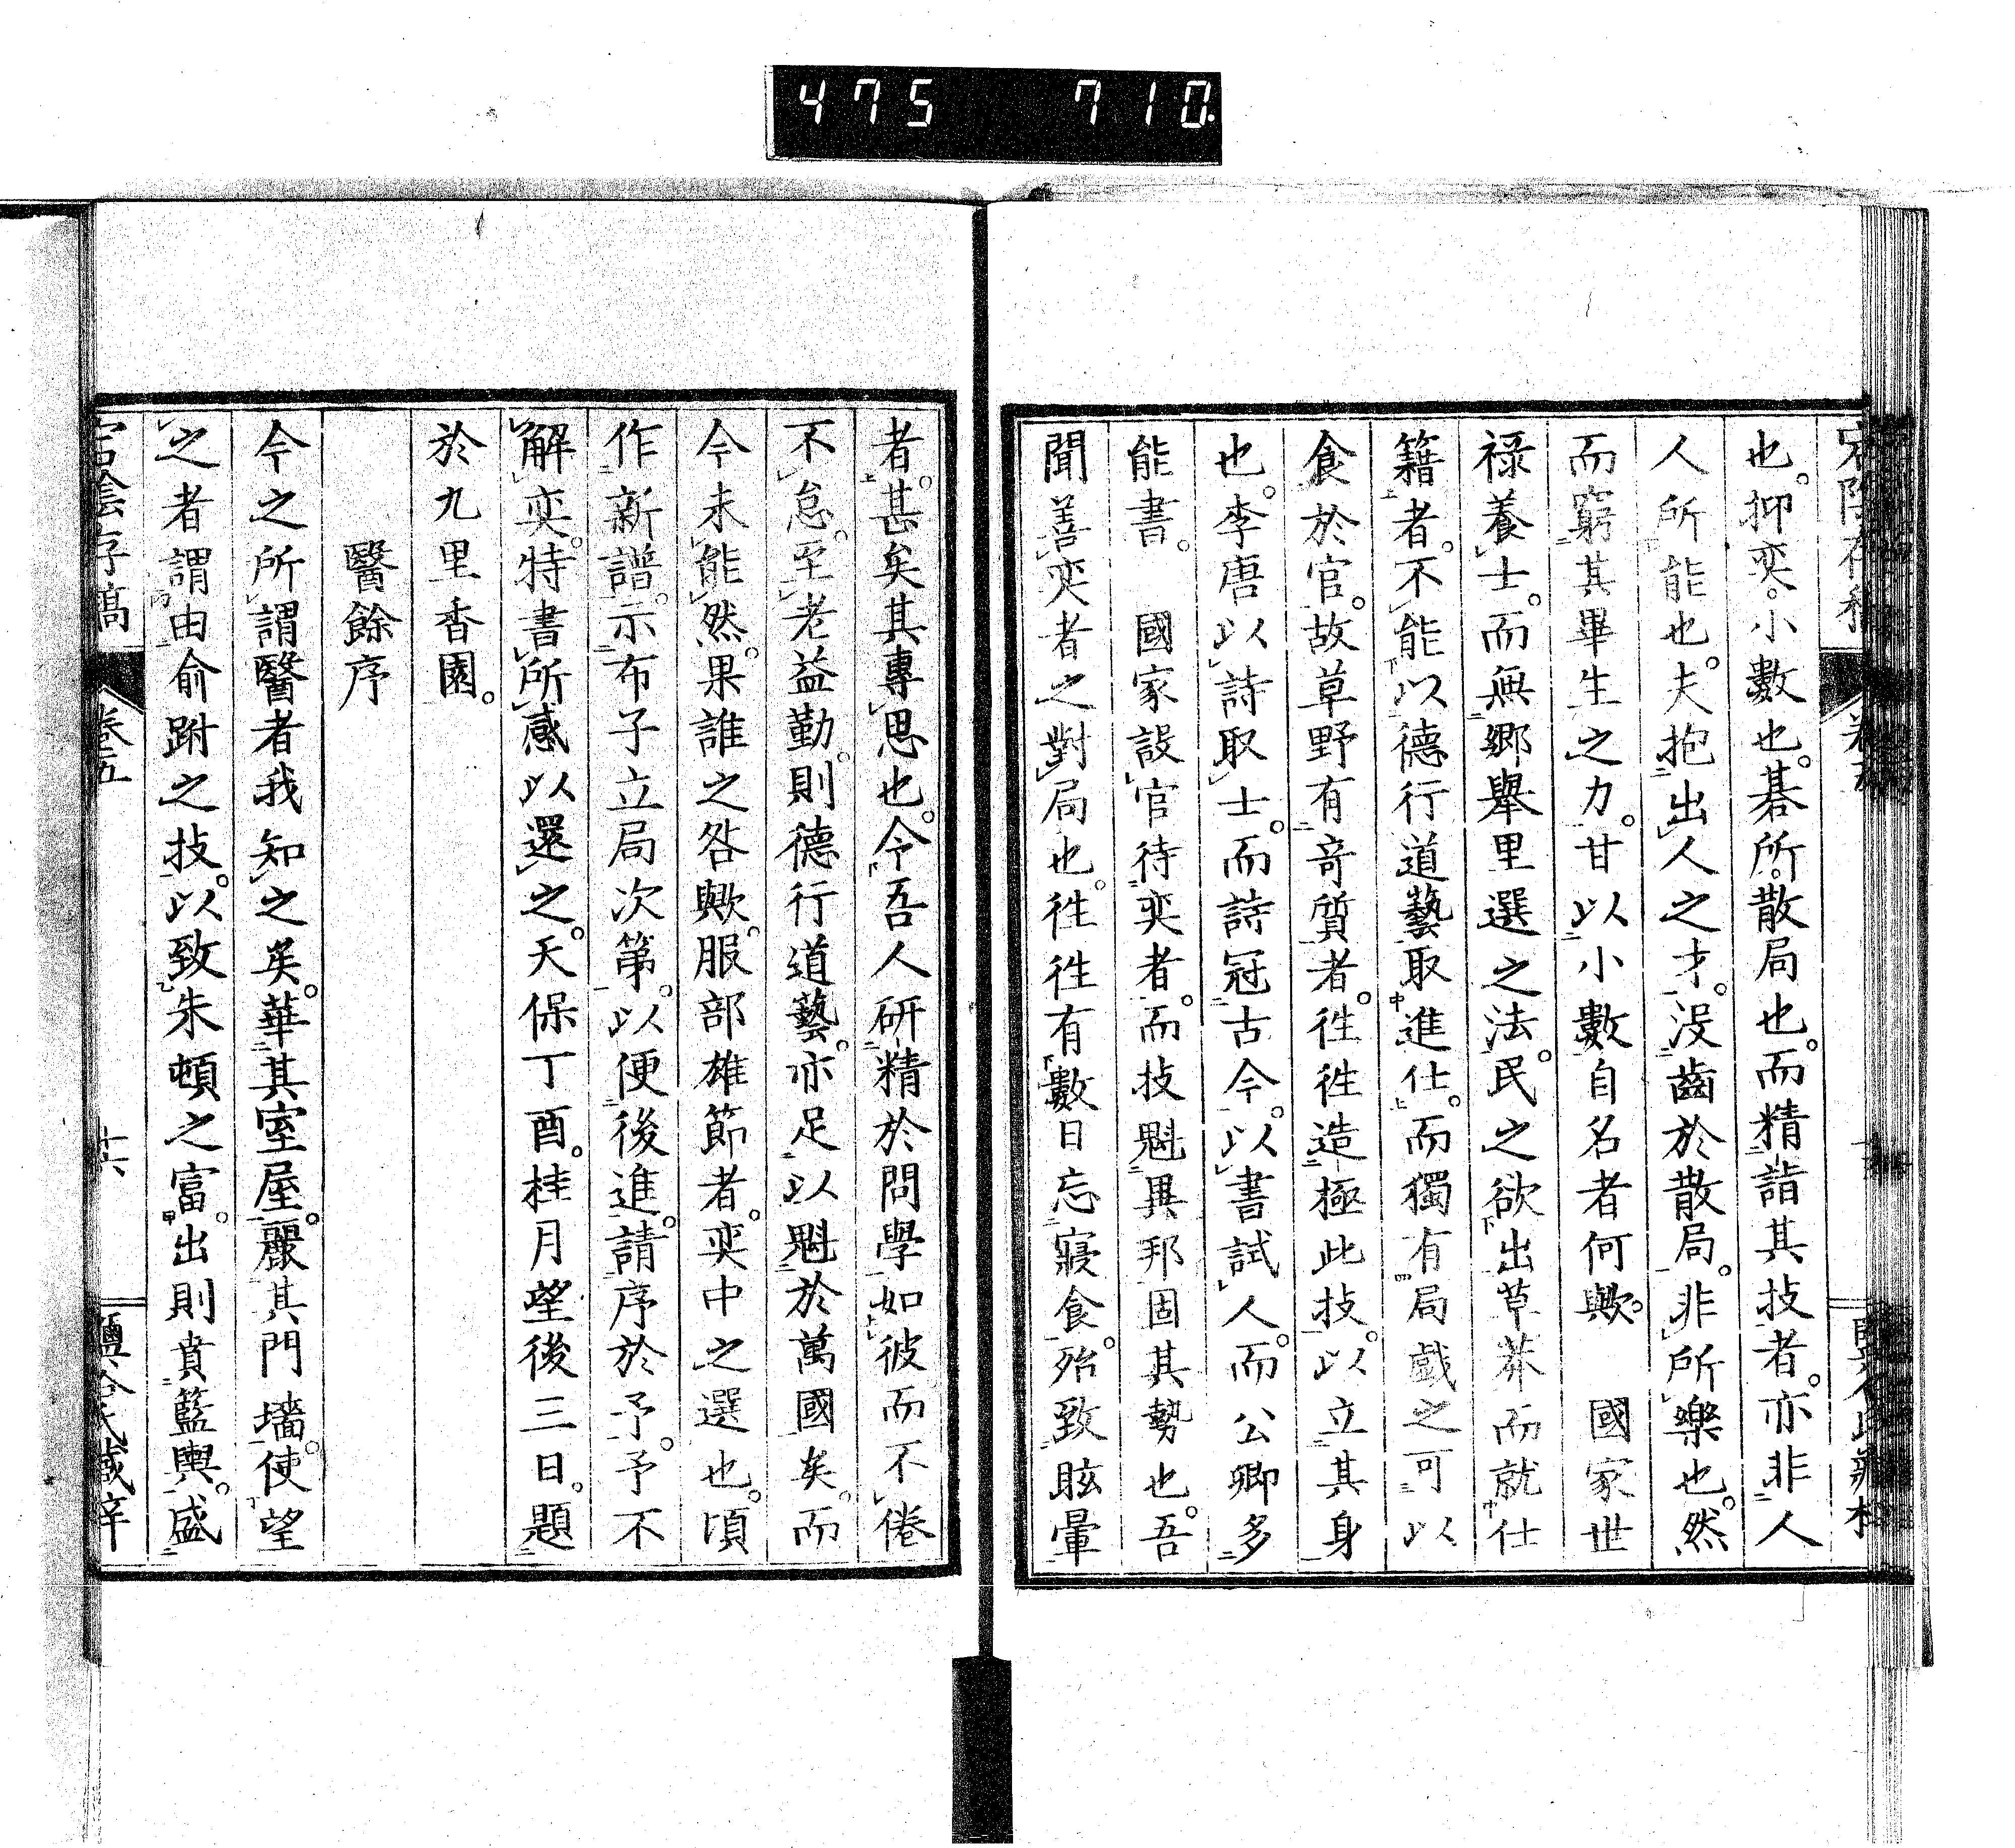 475 710
也。抑奕。小數也。棊所。散局也。而精詣其技者。亦非人
人所能也。夫抱出人之才。沒齒於散局。非所樂也。然
而窮其畢生之力。甘以小數自名者何歟。 國家世
祿養士。而無鄉舉里選之法。民之欲出草莽而就仕
籍者。不能以德行道藝取進仕。而獨有局戲之可以
食於官。故草野有奇質者。往往造極此技。以立其身
也。李唐以詩取士。而詩冠古今。以書試人。而公卿多
能書。 國家設官待奕者。而技魁異邦固其勢也。吾
聞善奕者之對局也。往往有數日忘寢食。殆致眩暈
者。甚矣其專思也。今吾人研精於問學如彼而不倦
不怠。至老益勤。則德行道藝。亦足以魁於萬國矣。而
今未能然。果誰之咎歟。服部雄節者。奕中之選也。頃
作新譜。示布子立局次第。以便後進。請序於予。予不
解奕。特書所感以還之。天保丁酉。桂月望後三日。題
於九里香園。
醫餘序
今之所謂醫者我知之矣。華其室屋。麗其門墻。使望
之者謂由俞跗之技。以致朱頓之富。出則賁籃輿。盛
宕陰存稿 卷五 十六